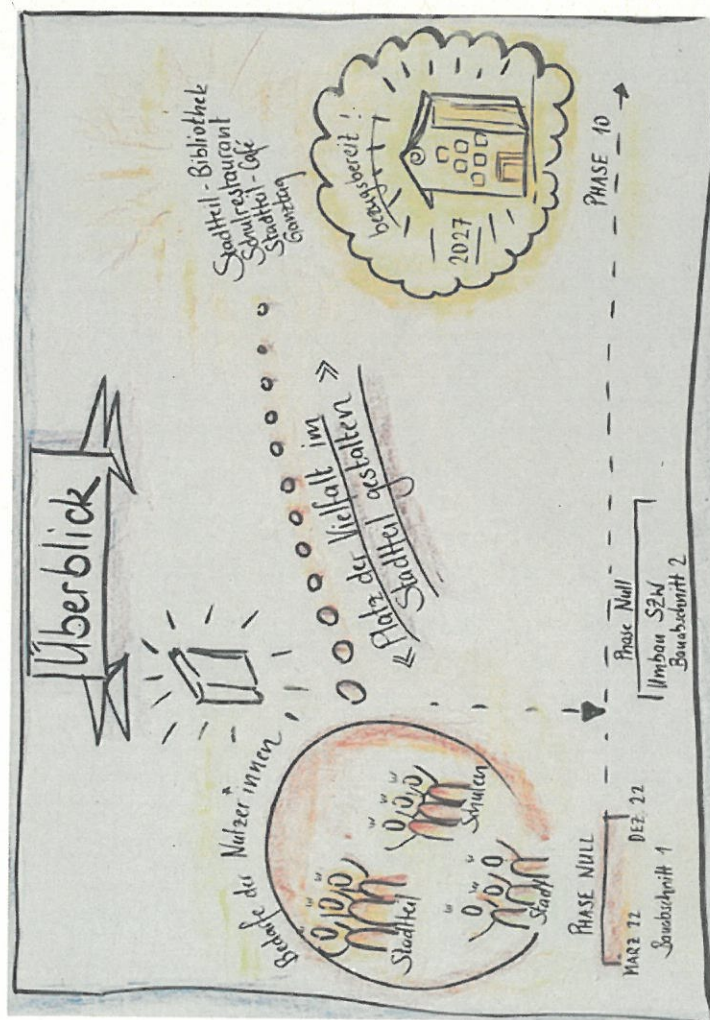 Überblick
Bedarfe der Nutzer*innen
Stadtteil
Schulen
Stadt
« Platz der Vielfalt im
Stadtteil gestalten »
Stadtteil-Bibliothek
Schulrestaurant
Stadtteil-Café
Ganztag
bezugsbereit!
2027
PHASE NULL
MÄRZ 22
DEZ. 22
Bauabschnitt 1
Phase Null
Umbau SZW
Bauabschnitt 2
PHASE 10